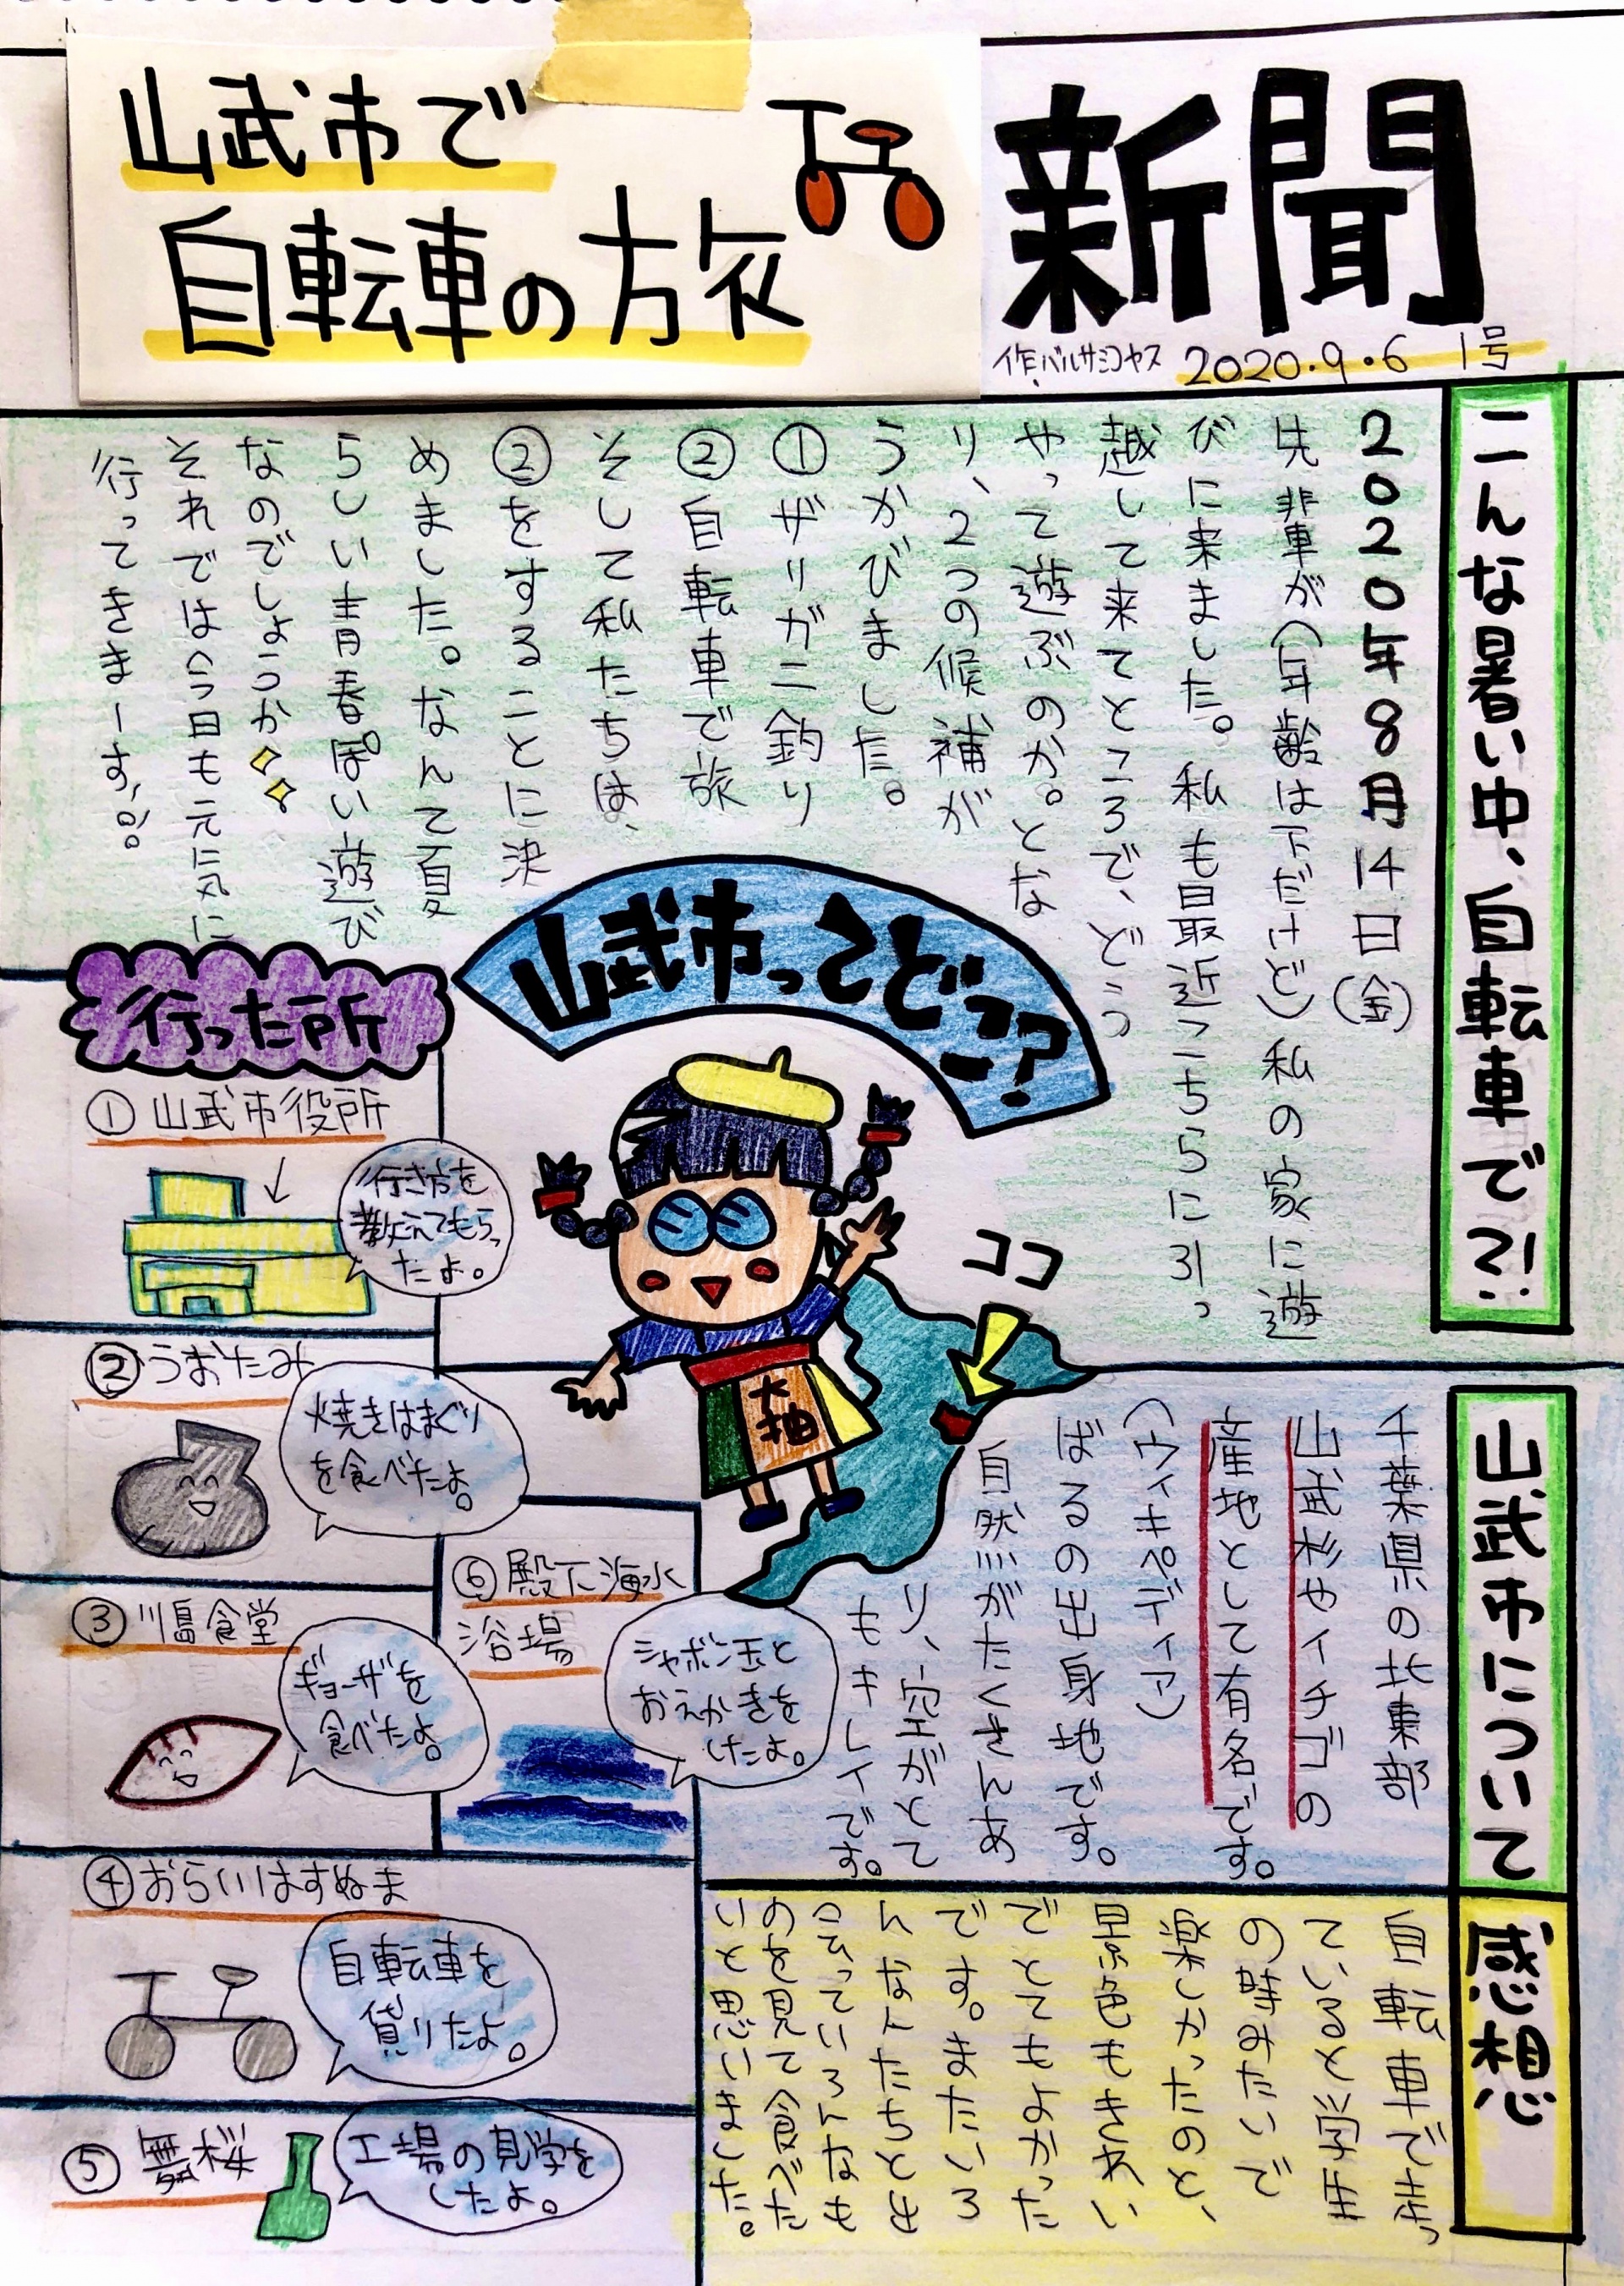 山武市で
自転車の旅
新聞
作.バルサミコヤス 2020.9.6 1号
こんな暑い中、自転車で?!
2020年8月14日(金)
先輩が(年齢は下だけど)私の家に遊
びに来ました。私も最近こちらに引っ
越して来てところで、どう
やって遊ぶのか。とな
り、2つの候補が
うかびました。
①ザリガニ釣り
②自転車で旅
そして私たちは、
②をすることに決
めました。なんて夏
らしい青春ぽい遊び
なのでしょうか
それでは今日も元気に
行ってきまーす!!
山武市ってどこ?
ココ
大
抽
山武市について
千葉県の北東部
山武杉やイチゴの
産地として有名です。
(ウィキペディア)
ばるの出身地です。
自然がたくさんあ
り、空がとて
もキレイです。
感想
自転車で走っ
ていると学生
の時みたいで
楽しかったのと、
景色もきれい
でとてもよかった
です。またいろ
んな人たちと出
会っていろんなも
のを見て食べた
いと思いました。
行った所
①山武市役所
行き方を
教えてもらっ
たよ。
②うおたみ
焼きはまぐり
を食べたよ。
③川島食堂
ギョーザを
食べたよ。
④おらいはすぬま
自転車を
貸りたよ。
⑤舞桜
工場の見学を
したよ。
⑥殿下海水
浴場
シャボン玉と
おえかきを
したよ。